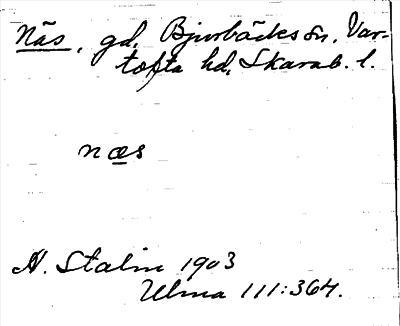 Näs, gd, Bjurbäcks sn, Var-
tofta hd, Skarab. l.
næs
N. Stalin 1903
Ulma 111:364.